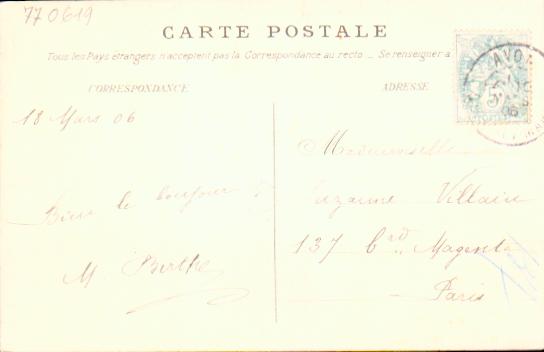 770619
CARTE POSTALE
Tous les Pays étrangers n'acceptent pas la Correspondance au recto — Se renseigner à
CORRESPONDANCE
ADRESSE
AVON
5
18 Mars 06
Mademoiselle
Suzanne Villain
Bien le bonjour
137 Bard Magenta
M. Berthe
Paris